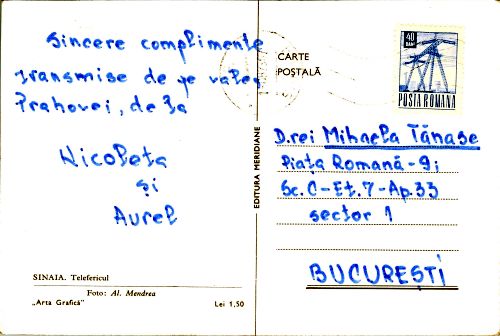 Sincere complimente
transmise de pe valea
Prahovei, de la
Nicoleta
și
Aurel
SINAIA. Telefericul
Foto: Al. Mendrea
„Arta Grafică”
Lei 1,50
EDITURA MERIDIANE
CARTE
POȘTALĂ
40
POSTA ROMANA
D.rei Mihaela Tănase
Piața Romană-9;
Sc.C-Et.7-Ap.33
sector 1
BUCUREȘTI